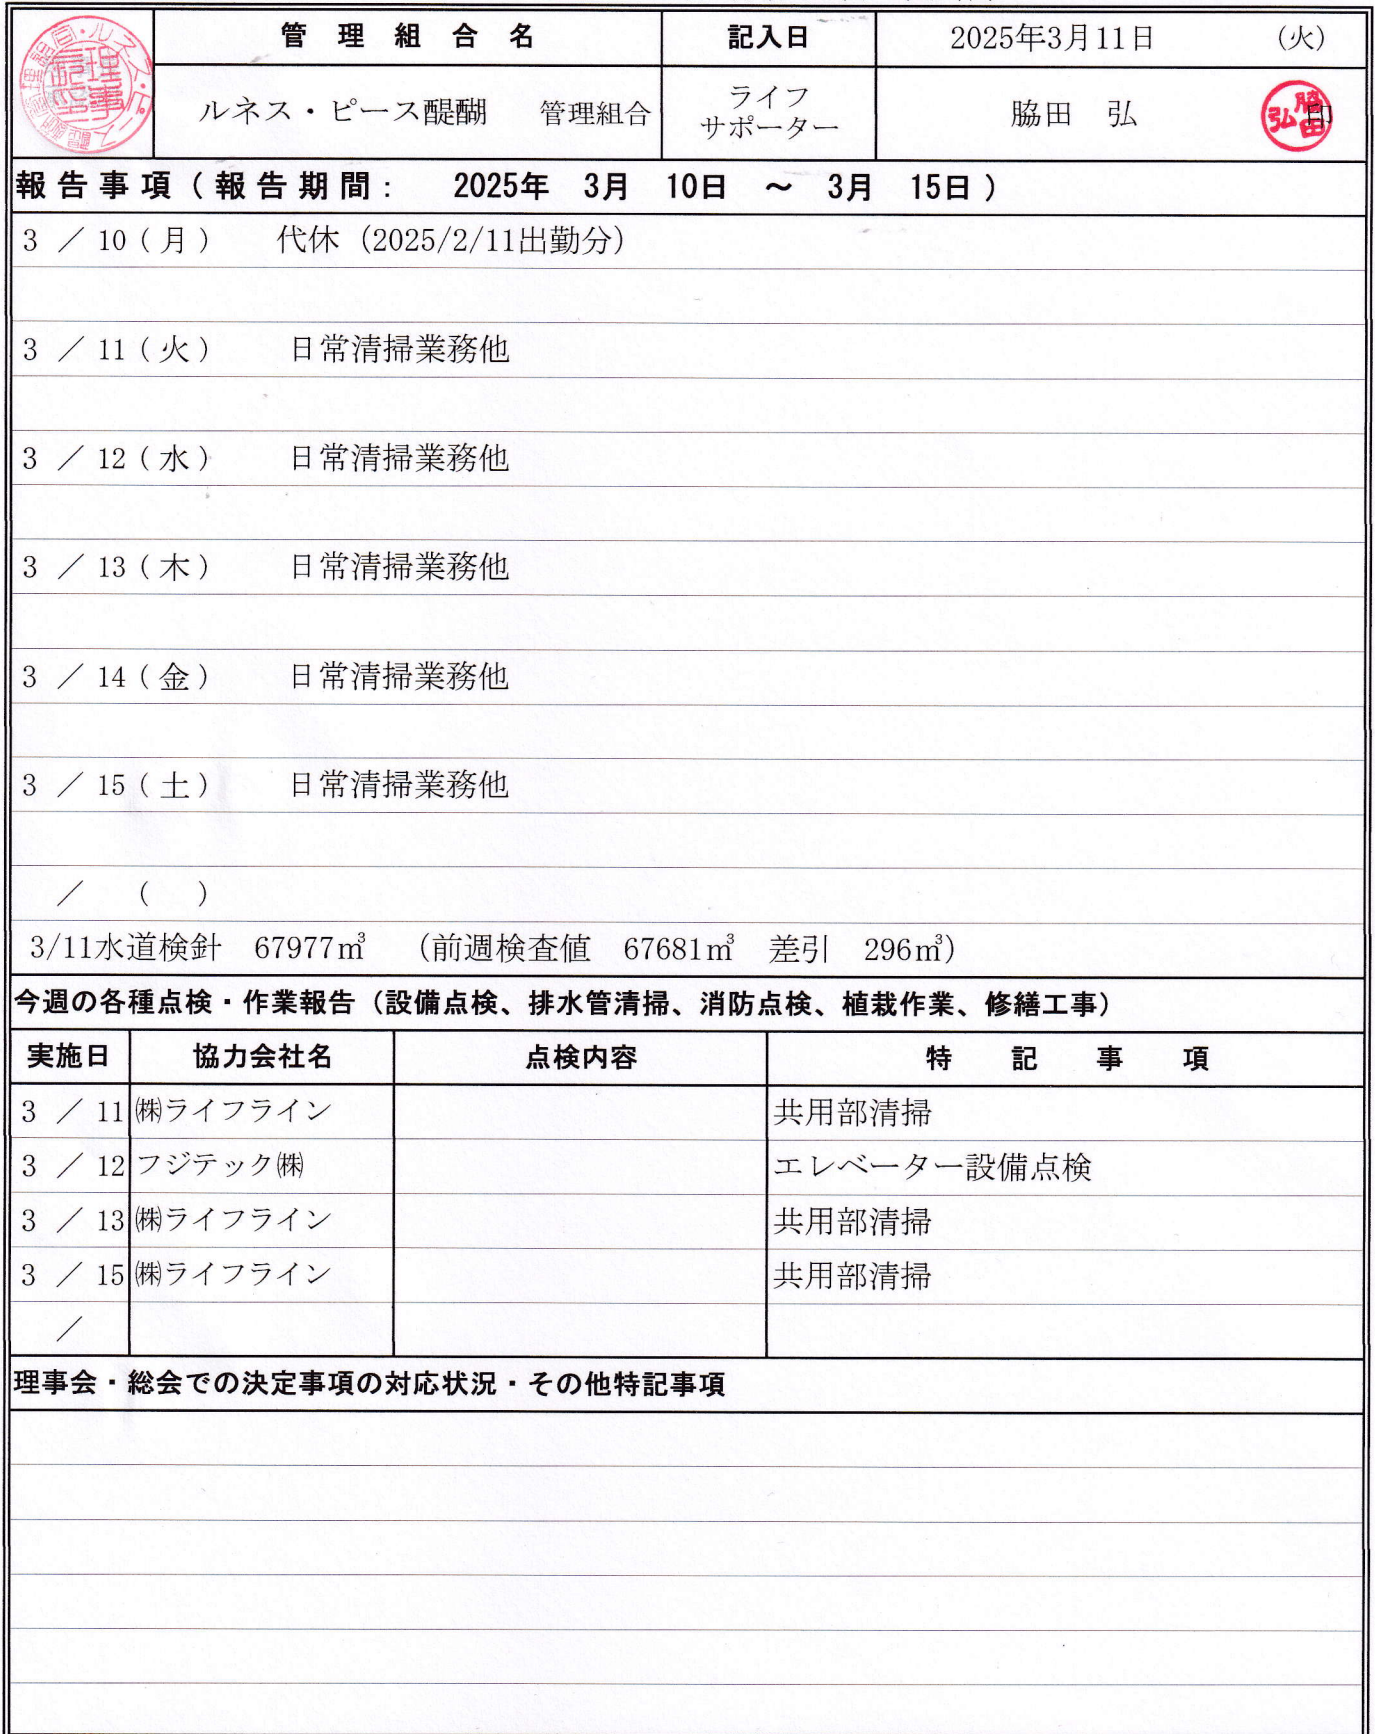 管理組合名 記入日 2025年3月11日 (火)
ルネス・ピース醍醐 管理組合 ライフサポーター 脇田 弘 印
報告事項(報告期間: 2025年 3月 10日 ～ 3月 15日)
3 ／ 10(月) 代休（2025/2/11出勤分）
3 ／ 11(火) 日常清掃業務他
3 ／ 12(水) 日常清掃業務他
3 ／ 13(木) 日常清掃業務他
3 ／ 14(金) 日常清掃業務他
3 ／ 15(土) 日常清掃業務他
／ ( )
3/11水道検針 67977㎥ （前週検査値 67681㎥ 差引 296㎥）
今週の各種点検・作業報告（設備点検、排水管清掃、消防点検、植栽作業、修繕工事）
実施日 協力会社名 点検内容 特記事項
3 ／ 11 ㈱ライフライン 共用部清掃
3 ／ 12 フジテック㈱ エレベーター設備点検
3 ／ 13 ㈱ライフライン 共用部清掃
3 ／ 15 ㈱ライフライン 共用部清掃
／
理事会・総会での決定事項の対応状況・その他特記事項